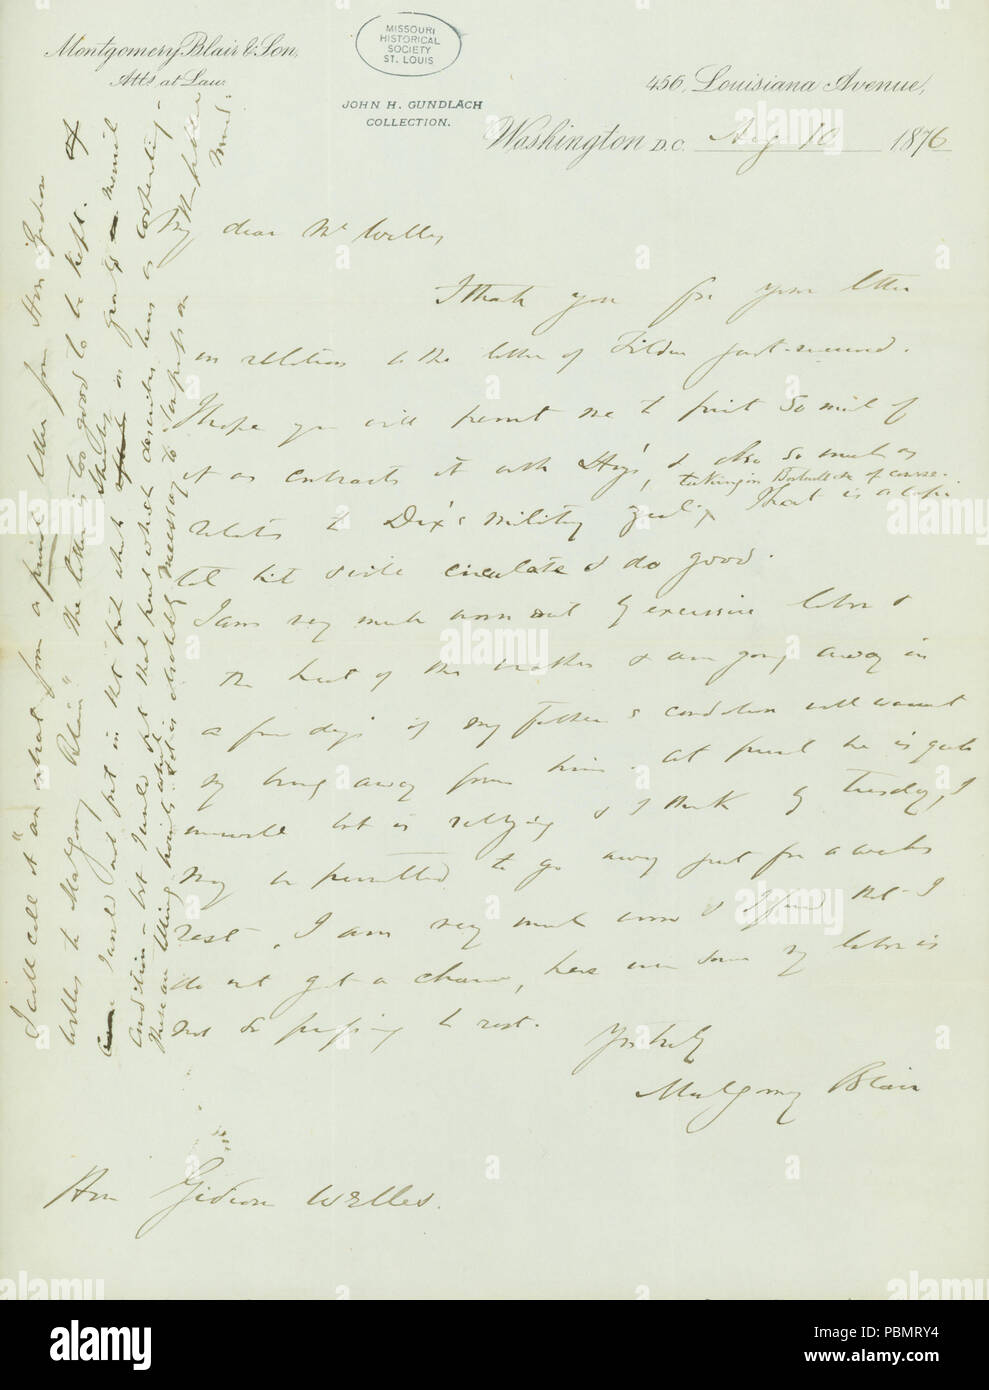 Montgomery Blair & Son,
Attys at Law.
MISSOURI
HISTORICAL
SOCIETY
ST. LOUIS
JOHN H. GUNDLACH
COLLECTION.
456, Louisiana Avenue,
Washington D.C. Aug 10 1876
My dear Mr Welles
I thank you for your letter
in relation to the letter of Tilden just received.
I hope you will permit me to print so much of
it as contrasts it with Hay's, & also so much as
taking in of course.
relates to Dix's military zeal. That is a
circulate & do good.
I am very much worn out by excessive labor &
the heat of the weather & am going away in
a few days if my father's condition will warrant
my being away from him. At present he is quite
unwell but is rallying & I think by Tuesday, I
may be permitted to go away just for a weeks
rest. I am very much worn & I find that I
do not get a chance, here even when my labor is
not so pressing to rest.
Yrs truly
Montgomery Blair
Hon Gideon Welles.
I will call it "an extract from a private letter from Hon Gideon
Welles to Montgomery Blair" The letter is too good to be kept.
I would not put in that part which
condition - but I would put that part which describes him as
There are telling points which it is necessary to impress on
the public
mind."
alamy
Image ID: PBMRY4
www.alamy.com